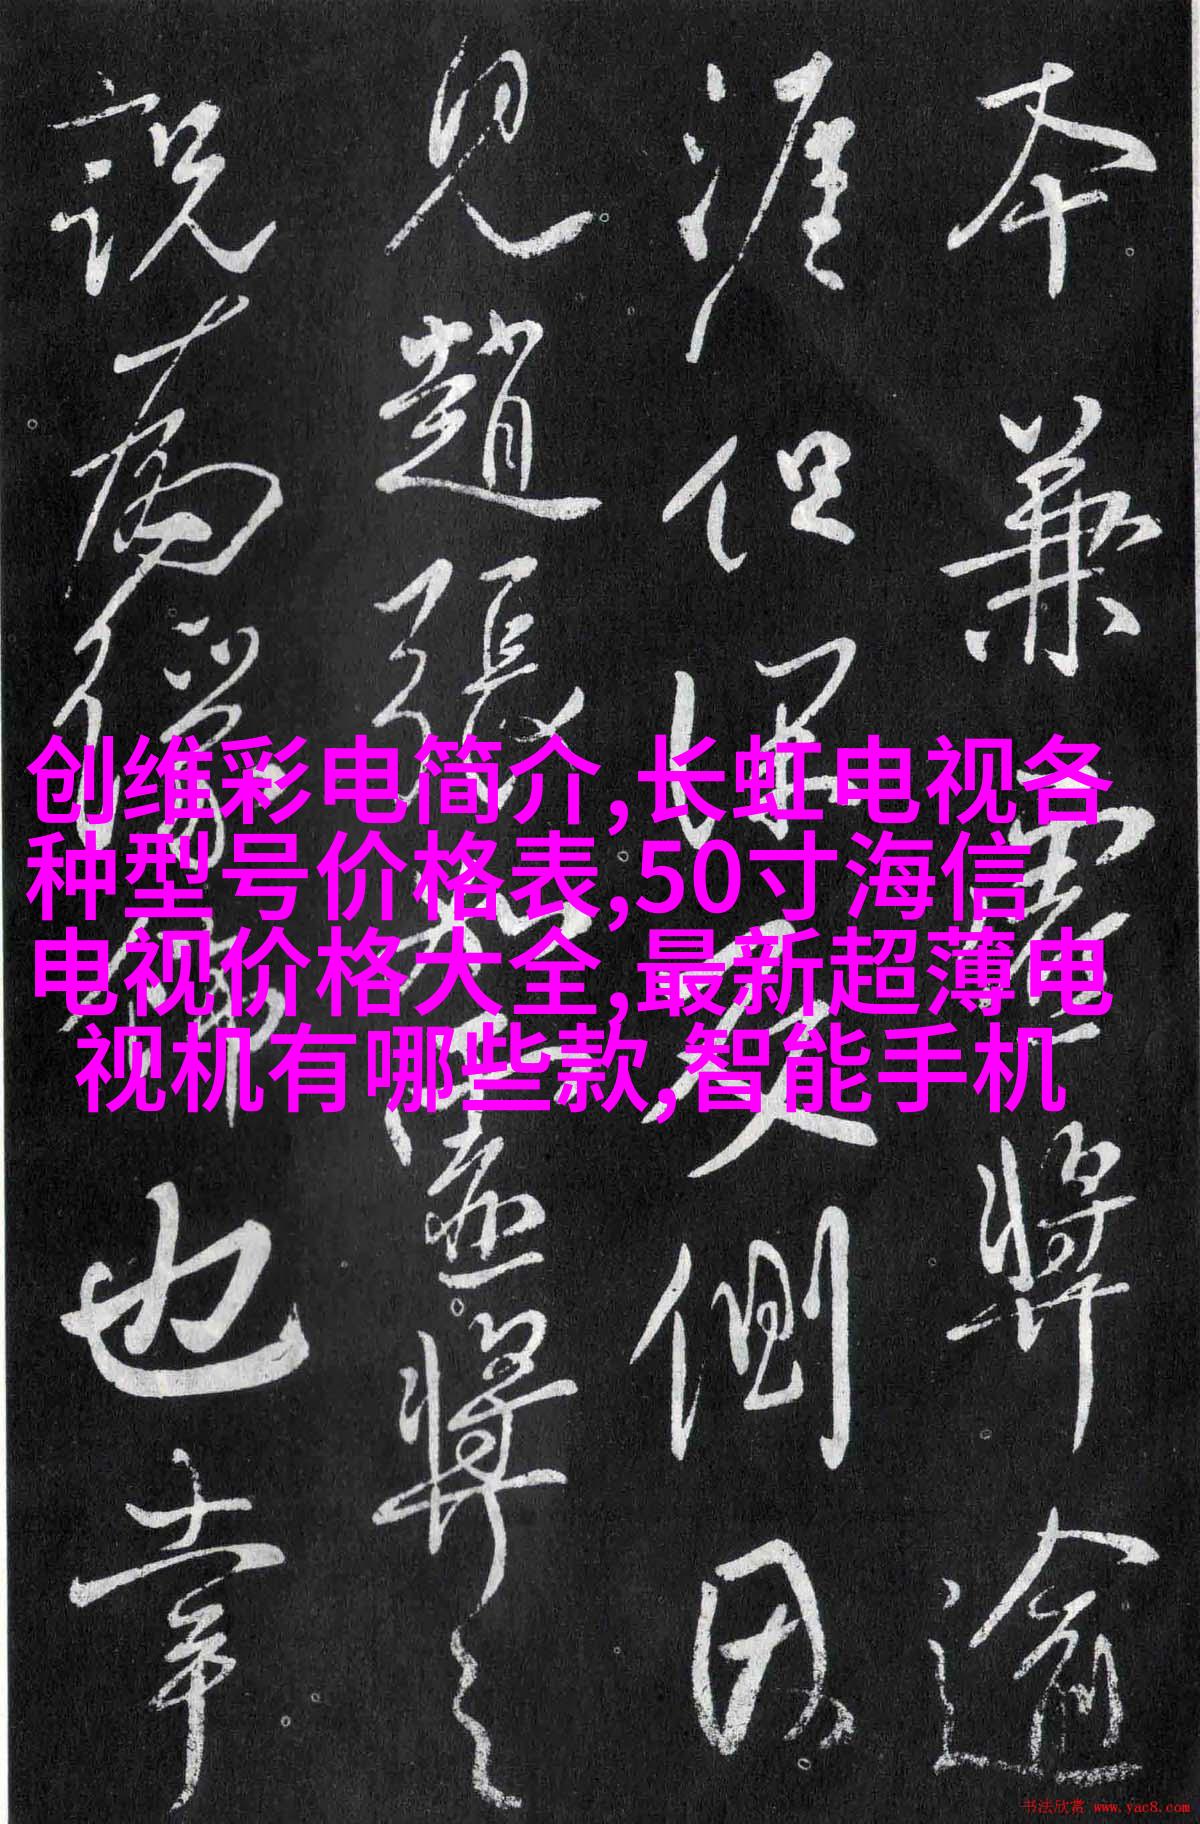 本兼 將逾
涯但 側因
見趙張 將之
說為 也章
创维彩电简介,长虹电视各
种型号价格表,50寸海信
电视价格大全,最新超薄电
视机有哪些款,智能手机
书法欣赏 www.yac8.com